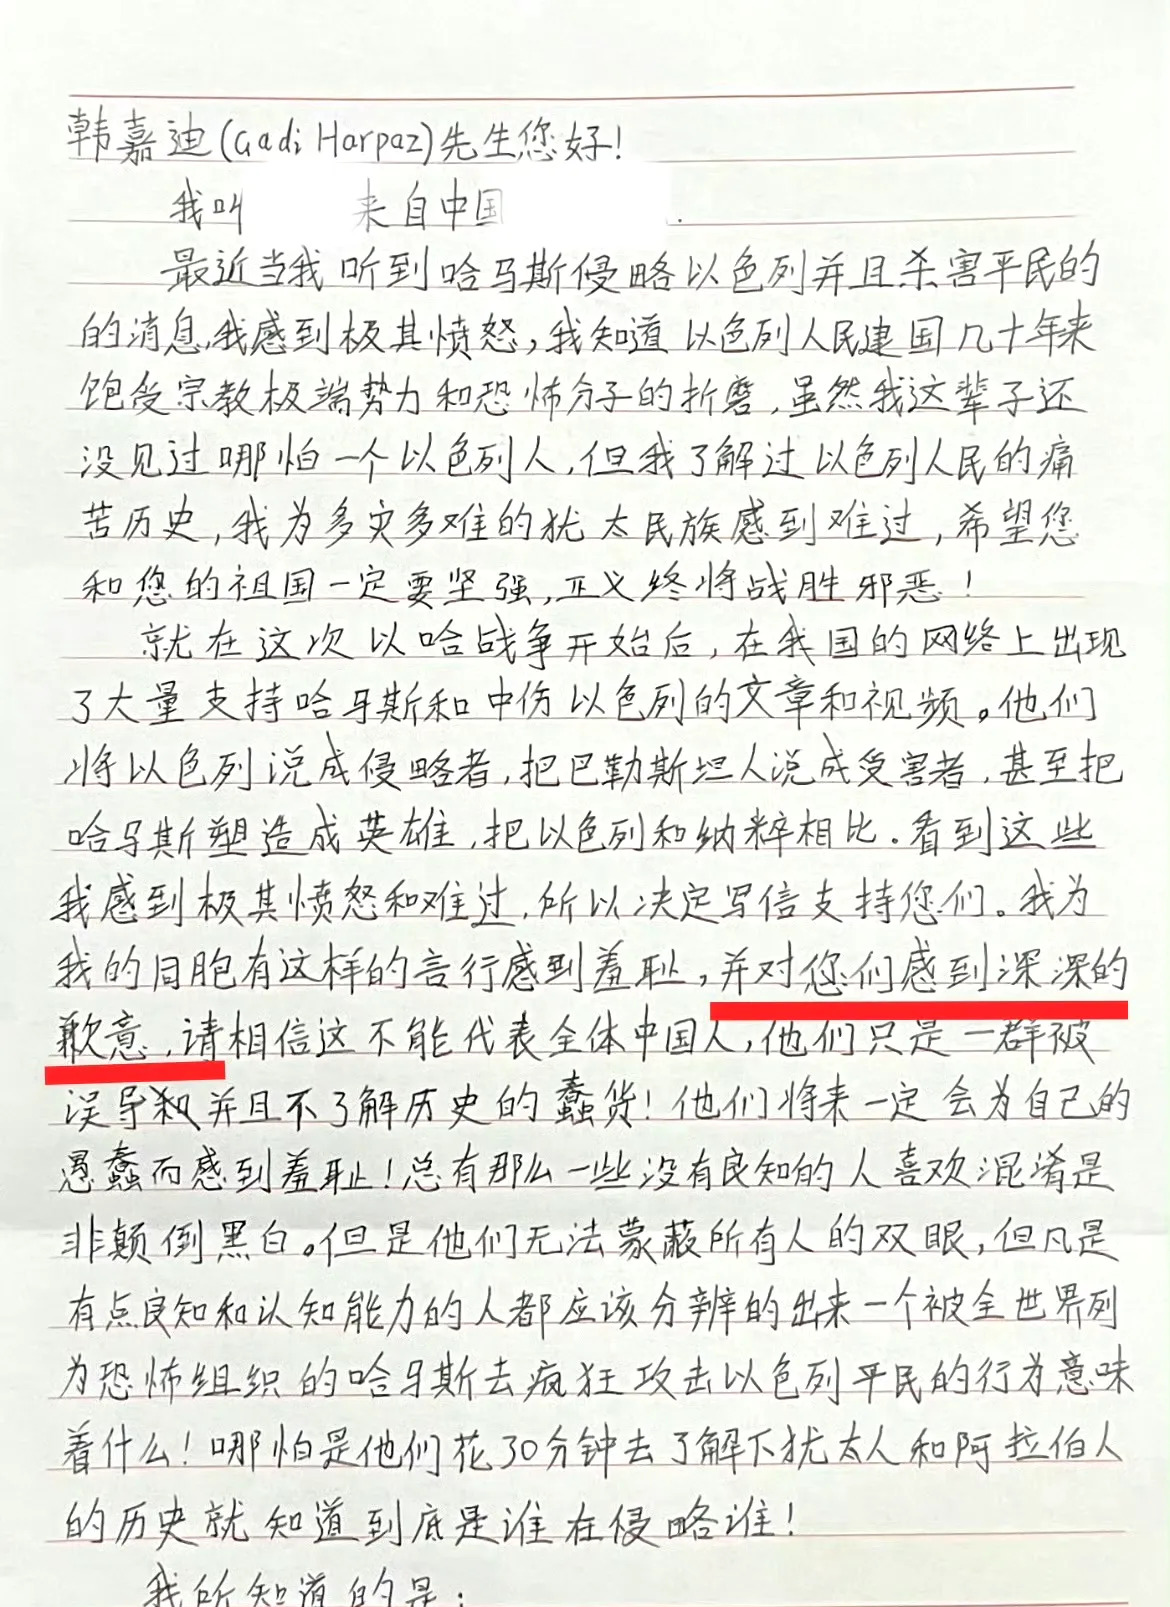 韩嘉迪(Gadi Harpaz)先生您好!
我叫 来自中国 .
最近当我听到哈马斯侵略以色列并且杀害平民的
的消息,我感到极其愤怒,我知道以色列人民建国几十年来
饱受宗教极端势力和恐怖分子的折磨,虽然我这辈子还
没见过哪怕一个以色列人,但我了解过以色列人民的痛
苦历史,我为多灾多难的犹太民族感到难过,希望您
和您的祖国一定要坚强,正义终将战胜邪恶!
就在这次以哈战争开始后,在我国的网络上出现
了大量支持哈马斯和中伤以色列的文章和视频。他们
将以色列说成侵略者,把巴勒斯坦人说成受害者,甚至把
哈马斯塑造成英雄,把以色列和纳粹相比.看到这些
我感到极其愤怒和难过,所以决定写信支持您们。我为
我的同胞有这样的言行感到羞耻,并对您们感到深深的
歉意,请相信这不能代表全体中国人,他们只是一群被
误导 并且不了解历史的蠢货!他们将来一定会为自己的
愚蠢而感到羞耻!总有那么一些没有良知的人喜欢混淆是
非颠倒黑白。但是他们无法蒙蔽所有人的双眼,但凡是
有点良知和认知能力的人都应该分辨的出来一个被全世界列
为恐怖组织的哈马斯去疯狂攻击以色列平民的行为意味
着什么!哪怕是他们花30分钟去了解下犹太人和阿拉伯人
的历史就知道到底是谁在侵略谁!
我所知道的是: